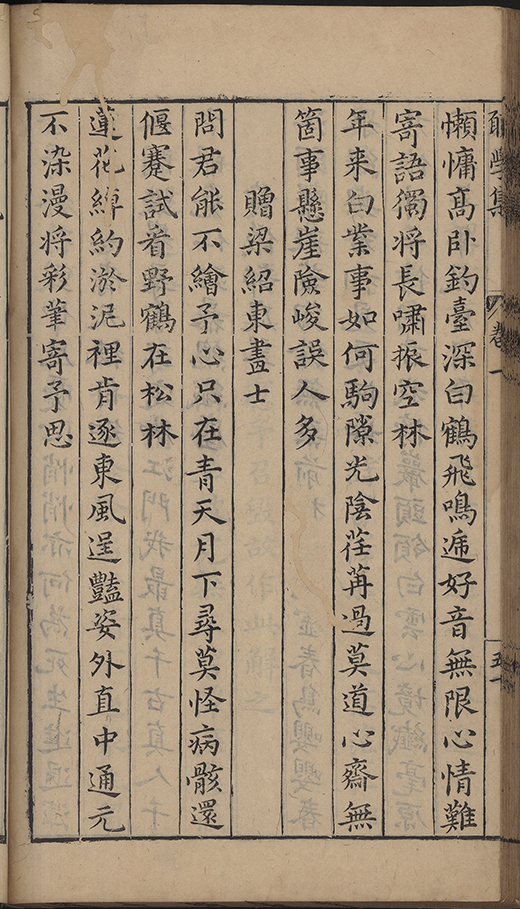 卷一
懶慵高卧釣臺深白鶴飛鳴逓好音無限心情難
寄語獨將長嘯振空林
年来白業事如何駒隙光陰荏苒過莫道心齋無
箇事懸崖險峻誤人多
贈梁紹東畫士
問君能不繪予心只在青天月下尋莫怪病骸還
偃蹇試看野鶴在松林
蓮花綽約淤泥裡肯逐東風逞豔姿外直中通元
不染漫将彩筆寄予思